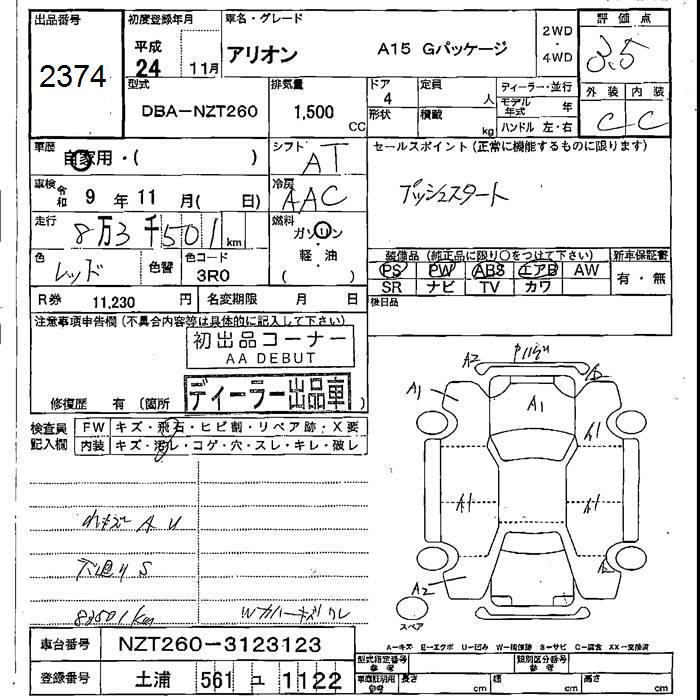 出品番号
2374
初度登録年月
平成
24 11月
車名・グレード
アリオン A15 Gパッケージ
2WD
・
4WD
評価点
3.5
外装 内装
C C
型式
DBA-NZT260
排気量
1,500
CC
ドア
4
形状
定員
人
積載
kg
ディーラー・並行
モデル年式 年
ハンドル 左・右
車歴
自家用・( )
シフト
AT
セールスポイント(正常に機能するものに限ります)
プッシュスタート
車検 令和 9 年 11 月( 日)
冷房
AAC
走行
8万3千501 km
燃料
ガソリン
軽・油
( )
色
レッド
色替
色コード
3R0
装備品(純正品に限り○をつけて下さい)
PS PW ABS エアB AW
SR ナビ TV カワ
新車保証書
有・無
R券 11,230 円
名変期限 月 日
後日品
注意事項申告欄(不具合内容等は具体的に記入して下さい)
初出品コーナー
AA DEBUT
ディーラー出品車
修復歴 有(箇所 )
検査員
記入欄
FW キズ・飛石・ヒビ割・リペア跡・X要
内装 キズ・汚レ・コゲ・穴・スレ・キレ・破レ
A U
S
83501km
A2
A1
A1
A1
A1
A1
A2
スペア
A-キズ E-エクボ U-凹み W-補修跡 S-サビ C-腐食 XX-交換済
車台番号 NZT260-3123123
登録番号 土浦 561 ユ 1122
型式指定番号
参考
類別区分番号
参考
車庫証明用
参考
長さ cm
幅 cm
高さ cm